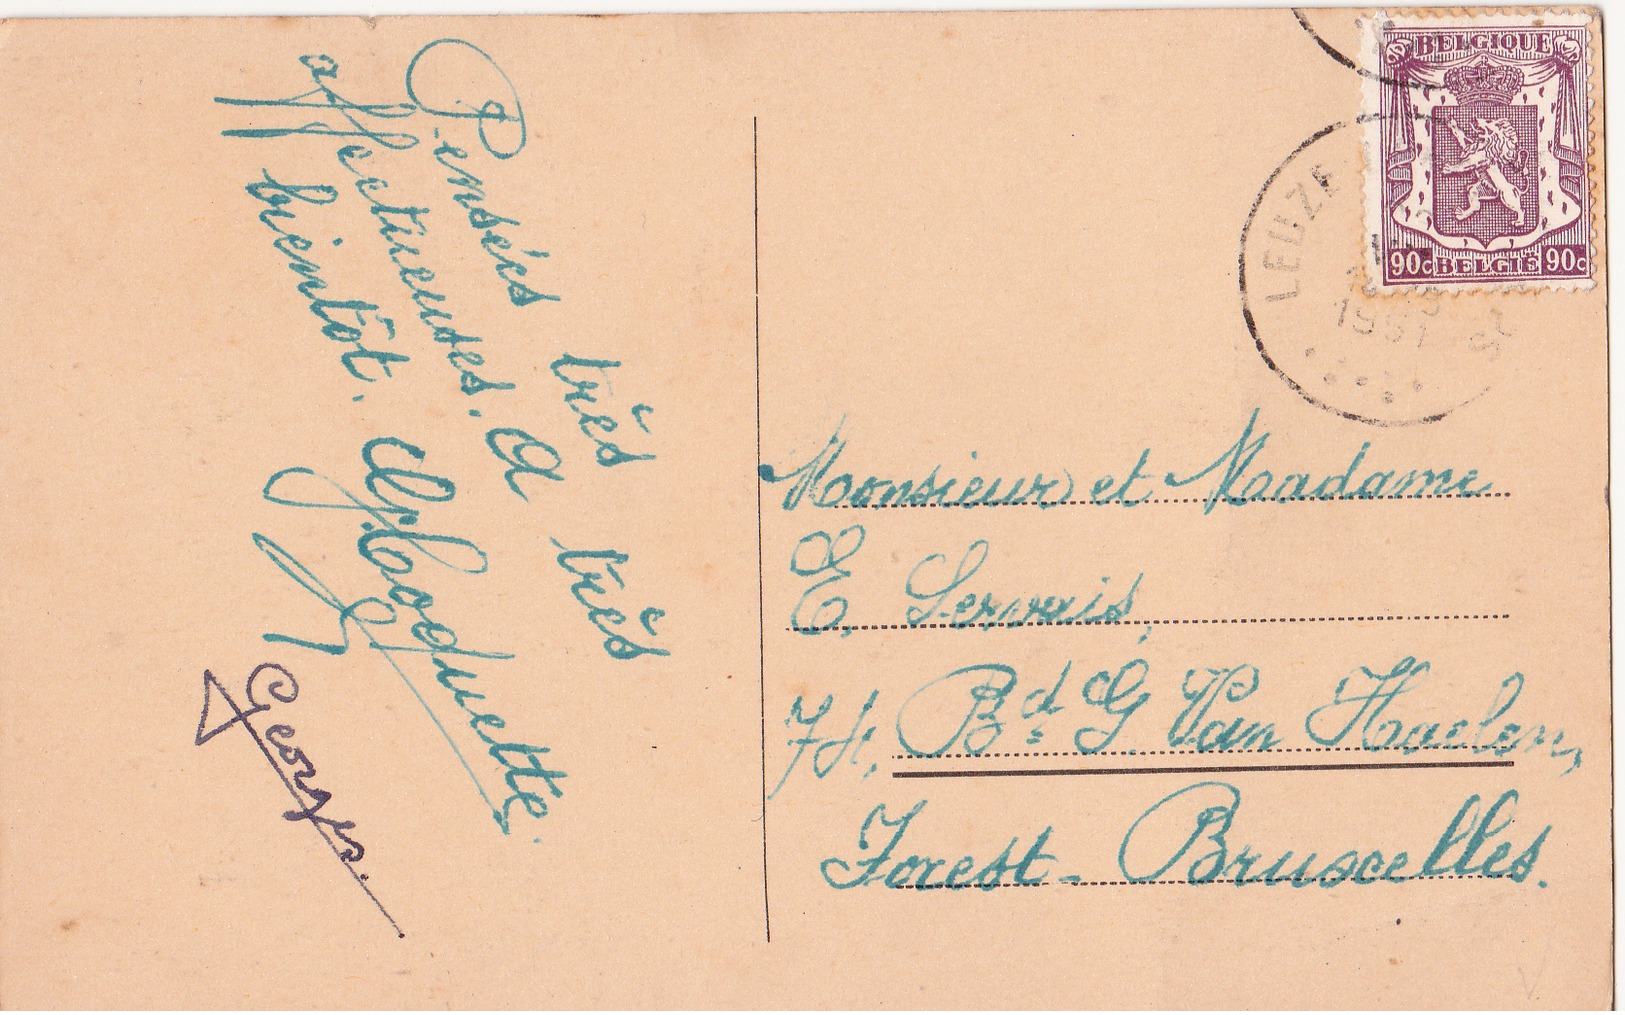 Pensées très
affectueuses. A très
bientôt.
Georges.
BELGIQUE
90c BELGIE 90c
LEUZE
1951
Monsieur et Madame
E. Servais,
74, Bd G. Van Haelen,
Forest - Bruxelles.